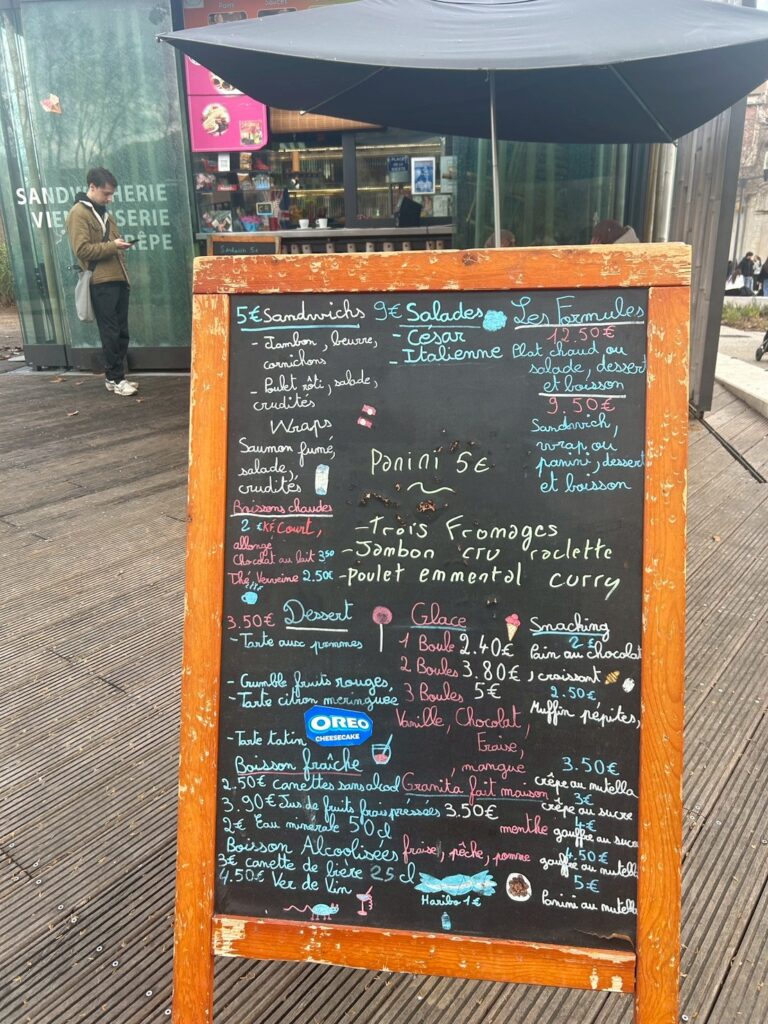 SANDWICHERIE
VIENNOISERIE
CRÊPE
5€ Sandwichs
- Jambon, beurre,
cornichons
- Poulet rôti, salade,
crudités
Wraps
Saumon fumé,
salade,
crudités
Boissons chaudes
2 € Kfé Court,
allongé
Chocolat au lait 3.50
Thé, Verveine 2.50€
9€ Salades
- César
- Italienne
Les Formules
12.50€
Plat chaud ou
salade, dessert
et boisson
9.50€
Sandwich,
wrap ou
panini, dessert
et boisson
Panini 5€
- Trois Fromages
- Jambon cru raclette
- poulet emmental curry
3.50€ Dessert
- Tarte aux pommes
- Crumble fruits rouges,
- Tarte citron meringuée
OREO
CHEESECAKE
- Tarte tatin
Boisson fraîche
2.50€ canettes sans alcool
3.90€ Jus de fruits frais préssés
2€ Eau minerale 50cl
Boisson Alcoolisées
3€ canette de bière 25cl
4.50€ Ver de Vin
Glace
1 Boule 2.40€
2 Boules 3.80€
3 Boules 5€
Vanille, Chocolat,
Fraise,
mangue
Granita fait maison
3.50€
menthe
fraise, pêche, pomme
Haribo 1€
Smaching
2€
Pain au chocolat
, croissant
2.50€
Muffin pépites,
3.50€
crêpe au nutella
3€
crêpe au sucre
4€
gauffre au sucre
4.50€
gauffre au nutella
5€
Panini au nutella